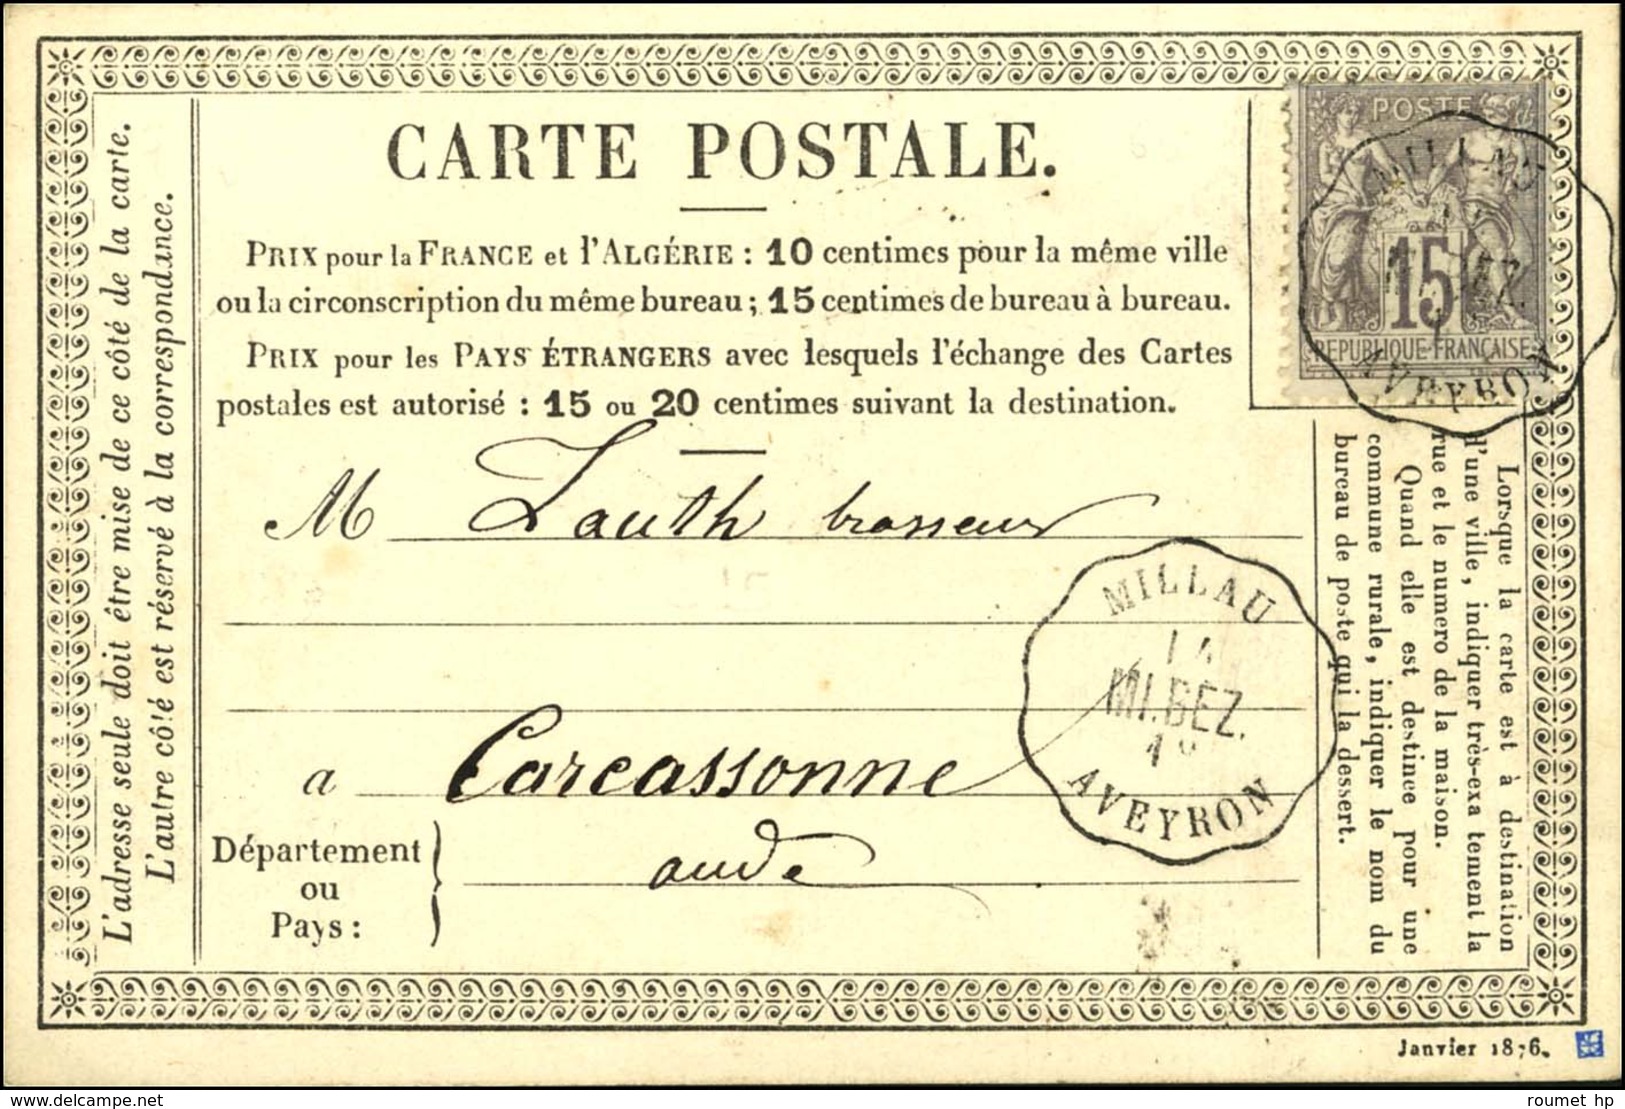 CARTE POSTALE.
PRIX pour la FRANCE et l'ALGÉRIE : 10 centimes pour la même ville
ou la circonscription du même bureau ; 15 centimes de bureau à bureau.
PRIX pour les PAYS ÉTRANGERS avec lesquels l'échange des Cartes
postales est autorisé : 15 ou 20 centimes suivant la destination.
M Lauth brasseur
a Carcassonne
Département
ou
Pays :
aude
L'adresse seule doit être mise de ce côté de la carte.
L'autre côté est réservé à la correspondance.
POSTE
15
REPUBLIQUE FRANÇAISE
MILLAU
AVEYRON
MILLAU
MI.BEZ.
AVEYRON
Lorsque la carte est à destination
d'une ville, indiquer très-exa tement la
rue et le numero de la maison.
Quand elle est destinée pour une
commune rurale, indiquer le nom du
bureau de poste qui la dessert.
Janvier 1876.
roumet hp